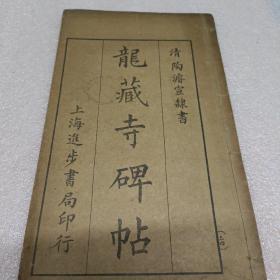 清陶濬宣隸書
龍藏寺碑帖
上海進步書局印行